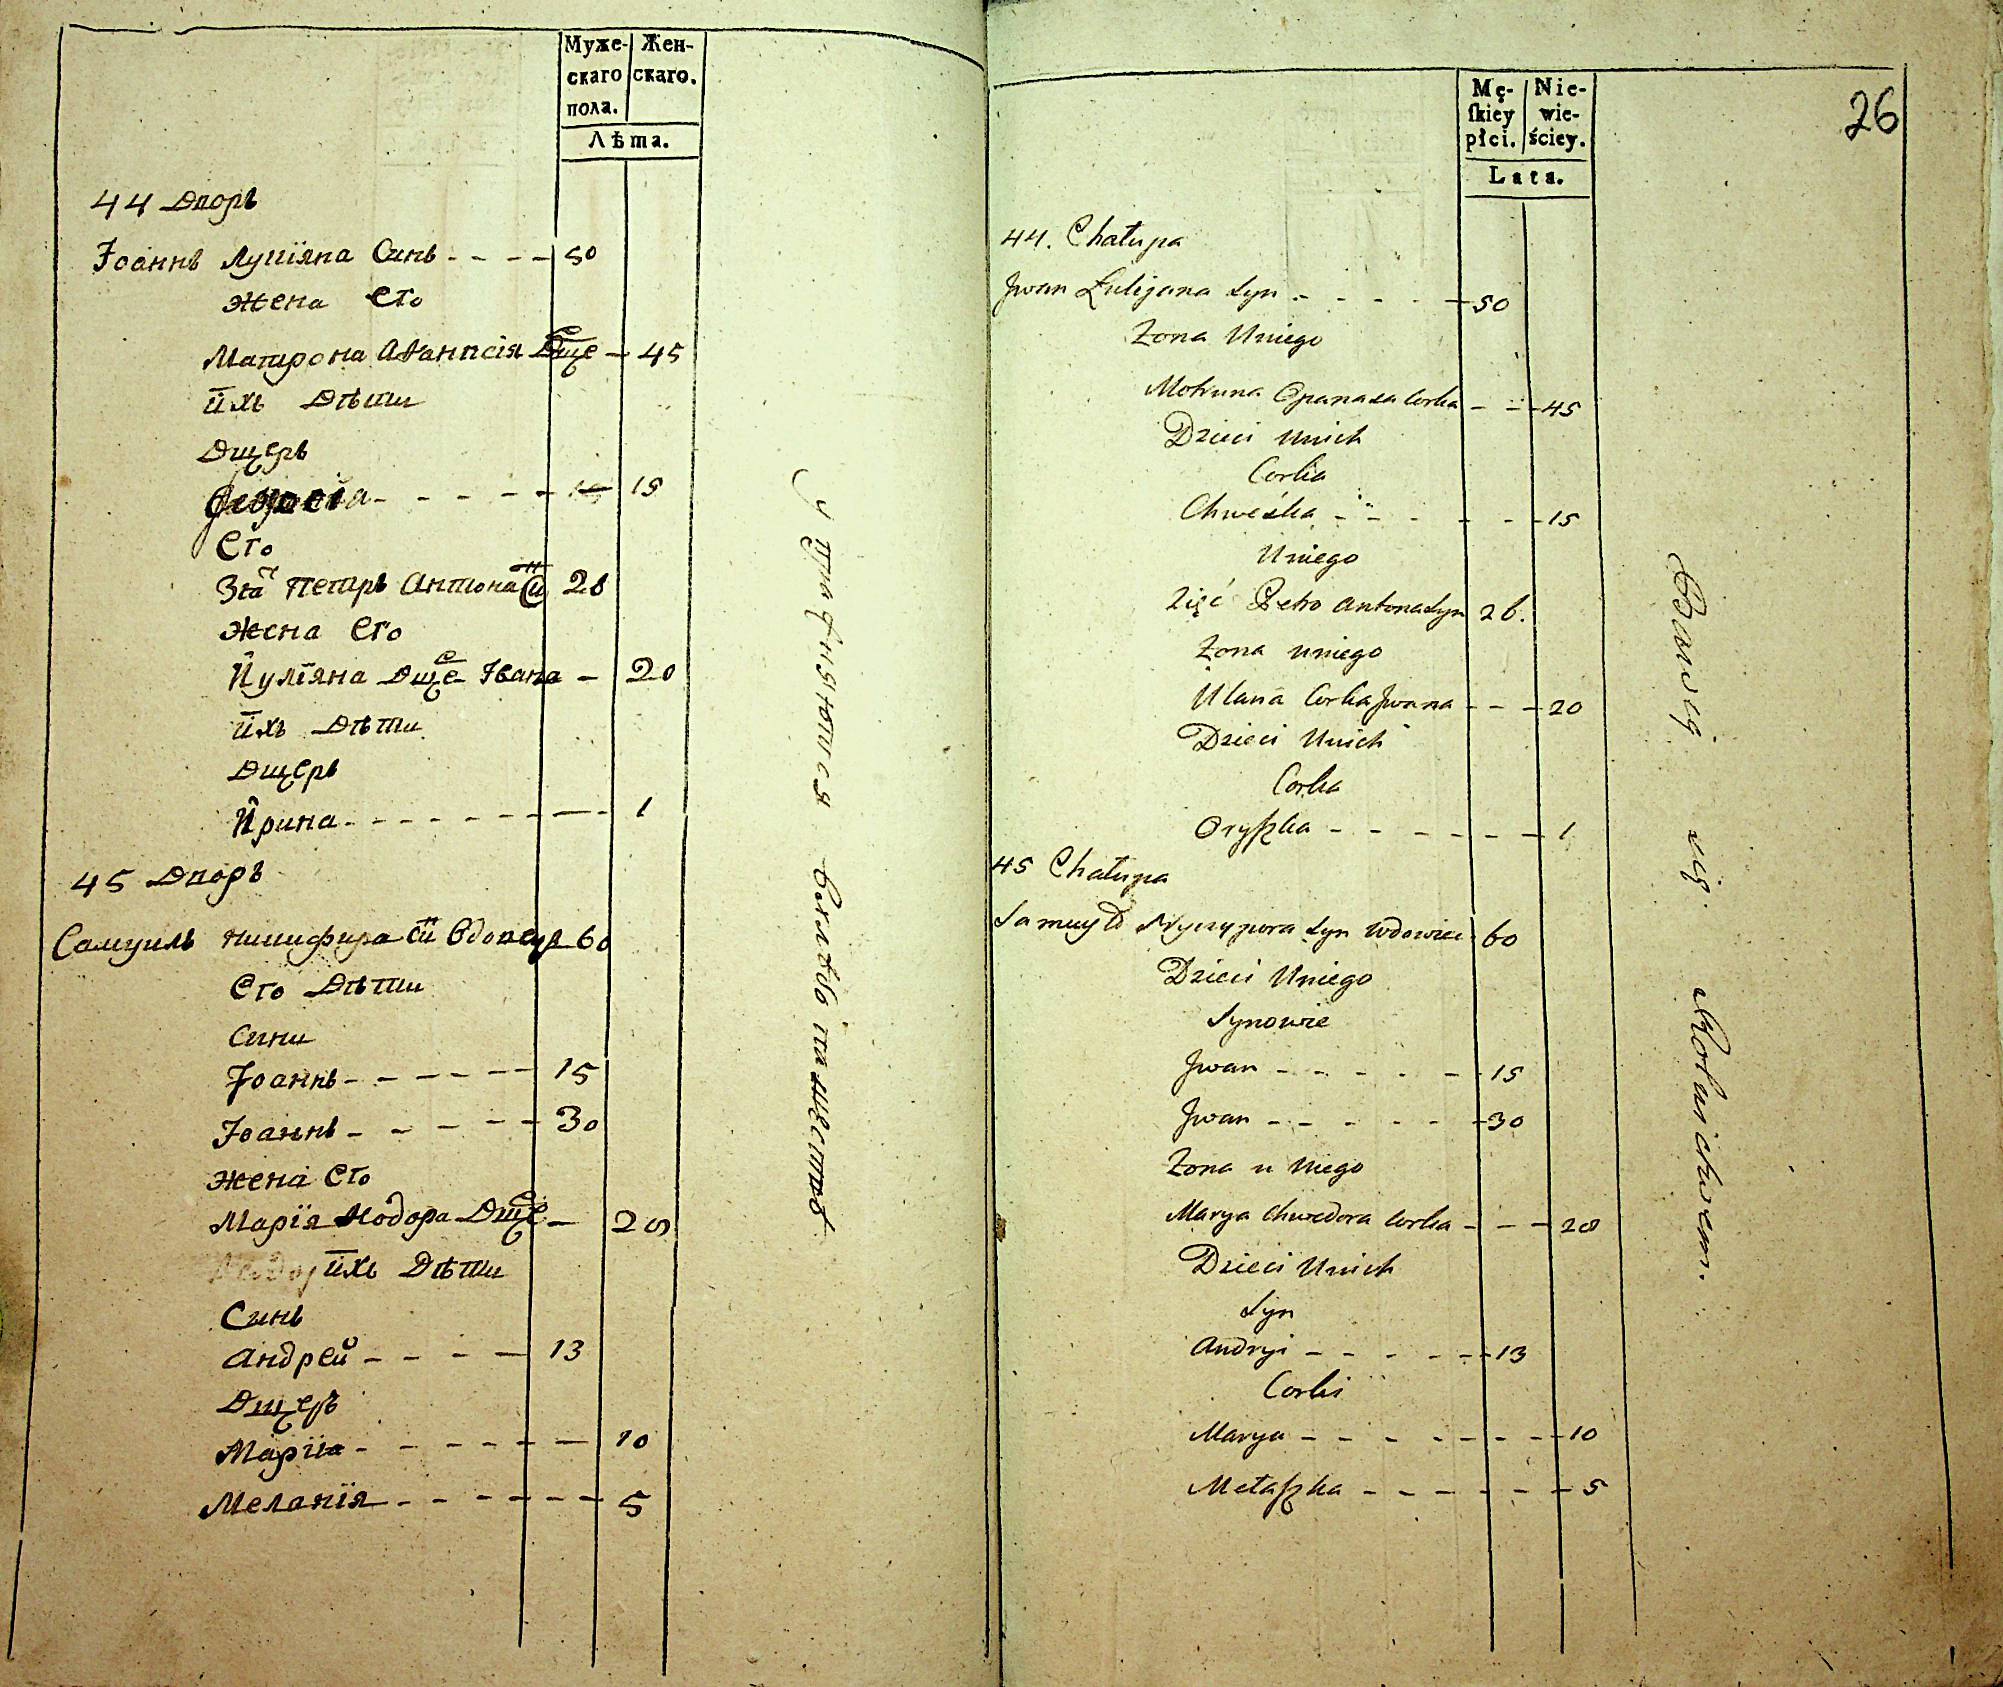 Муже- Жен-
скаго скаго.
пола.
Лѣта.
44 Дворъ
Іоаннъ Лукіяна Синъ - - - - 50
Жена Его
Матрона Аѳанасія Дще - 45
ихъ Дѣти
Дщерь
- - - - - 15
Его
Зя Петръ Антона Си 26
Жена Его
Иуліяна Дще Івана - 20
ихъ Дѣти
Дщерь
Ирина - - - - - - - 1
45 Дворъ
Самуилъ Никифира Си Вдовецъ 60
Его Дѣти
Сини
Іоаннъ - - - - - - 15
Іоаннъ - - - - - 30
Жена Его
Марія Ѳодора Дще - 28
ихъ Дѣти
Синъ
Андрей - - - - 13
Дщерѣ
Маріа - - - - - - 10
Меланія - - - - - - 5
упражняются
Мę-
ſkiey
płci.
Nie-
wie-
ściey.
Lata.
26
44. Chałupa
Jwan Łukijana Syn - - - - - 50
Żona Uniego
Motruna Opanasa Corka - - - 45
Dzieci Unich
Corka
Chweśka - - - - - - 15
Uniego
Zięć Petro Antona Syn 26.
Żona uniego
Ulana Corka Jwana - - - 20
Dzieci Unich
Corka
Oryſzka - - - - - - 1
45 Chałupa
Samuyło Nyczypora Syn Wdowiec 60
Dzieci Uniego
Synowie
Jwan - - - - - - 15
Jwan - - - - - - 30
Żona u Niego
Marya Chwedora Corka - - - 28
Dzieci Unich
Syn
Andryi - - - - - - 13
Corki
Marya - - - - - - - 10
Mełaſzka - - - - - - 5
Bawią się Rolnictwem.